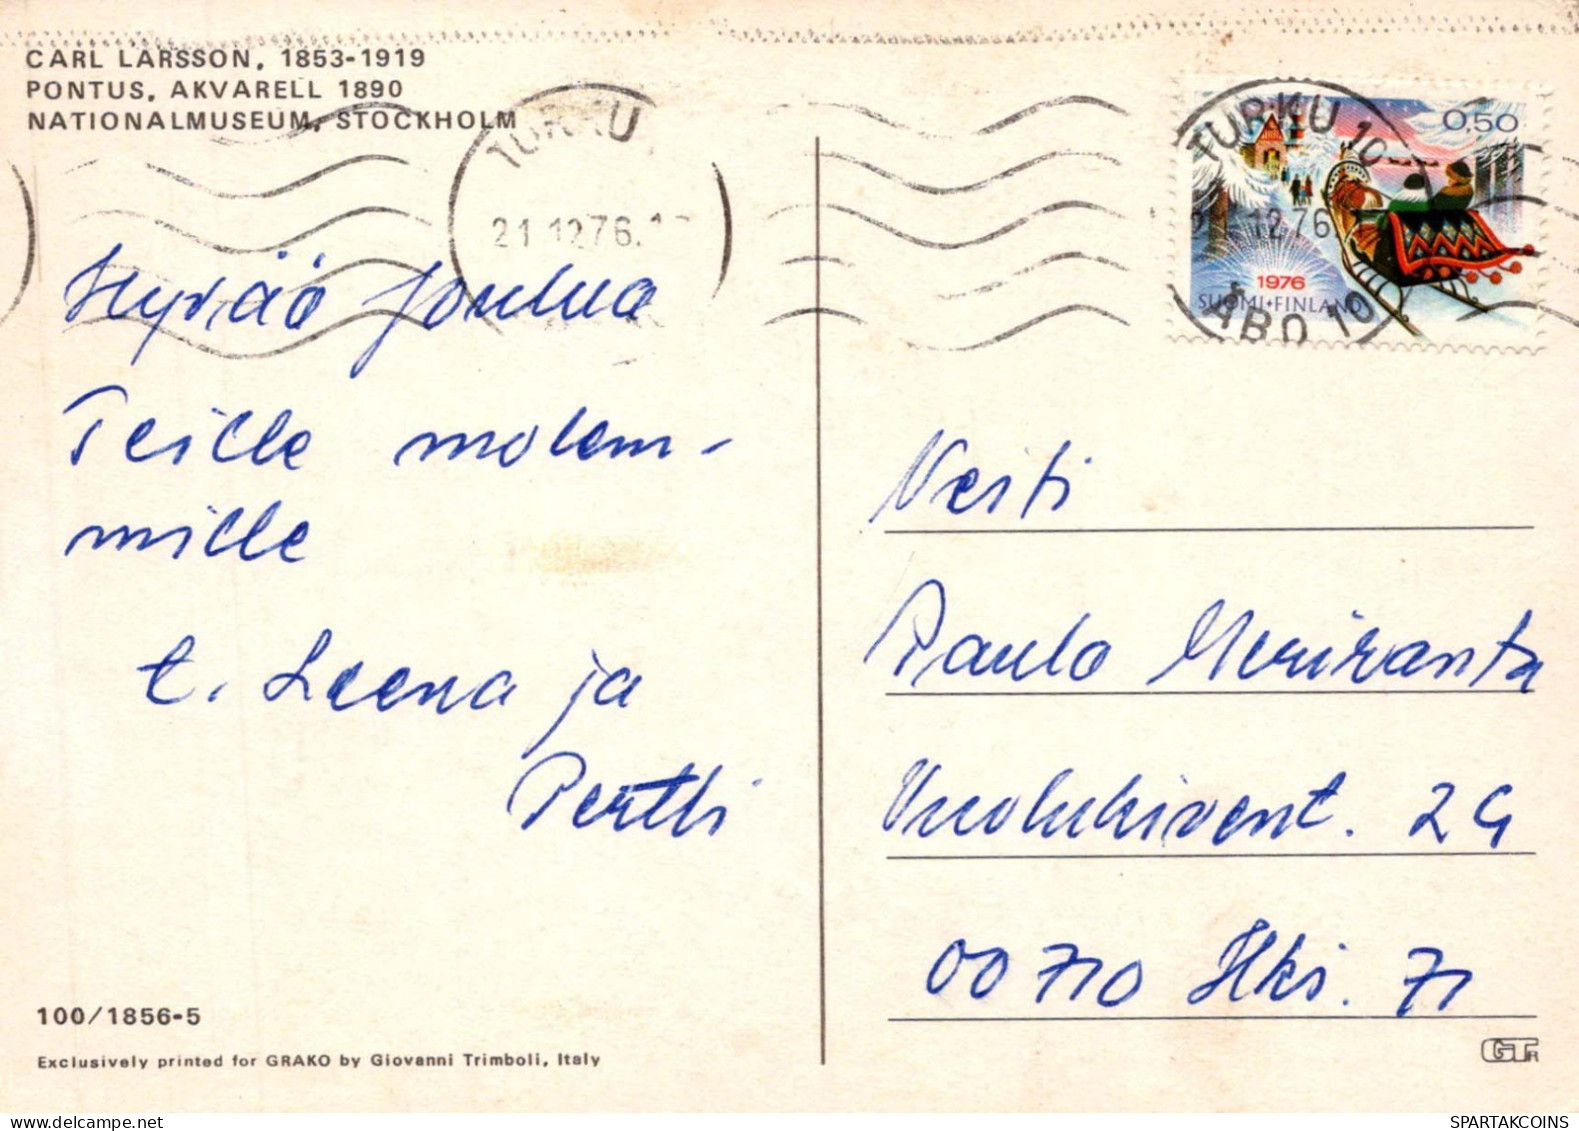 CARL LARSSON, 1853-1919
PONTUS, AKVARELL 1890
NATIONALMUSEUM, STOCKHOLM
TURKU
21.12.76.1
TURKU 10
21.12.76.1
ÅBO 10
0,50
1976
SUOMI-FINLAND
Hyvää Joulua
Teille molem-
mille
t. Leena ja
Pertti
Neiti
Paula Meriranta
Vuolukivent. 2 G
00710 Hki. 71
100/1856-5
Exclusively printed for GRAKO by Giovanni Trimboli, Italy
GTR
SPARTAKCOINS